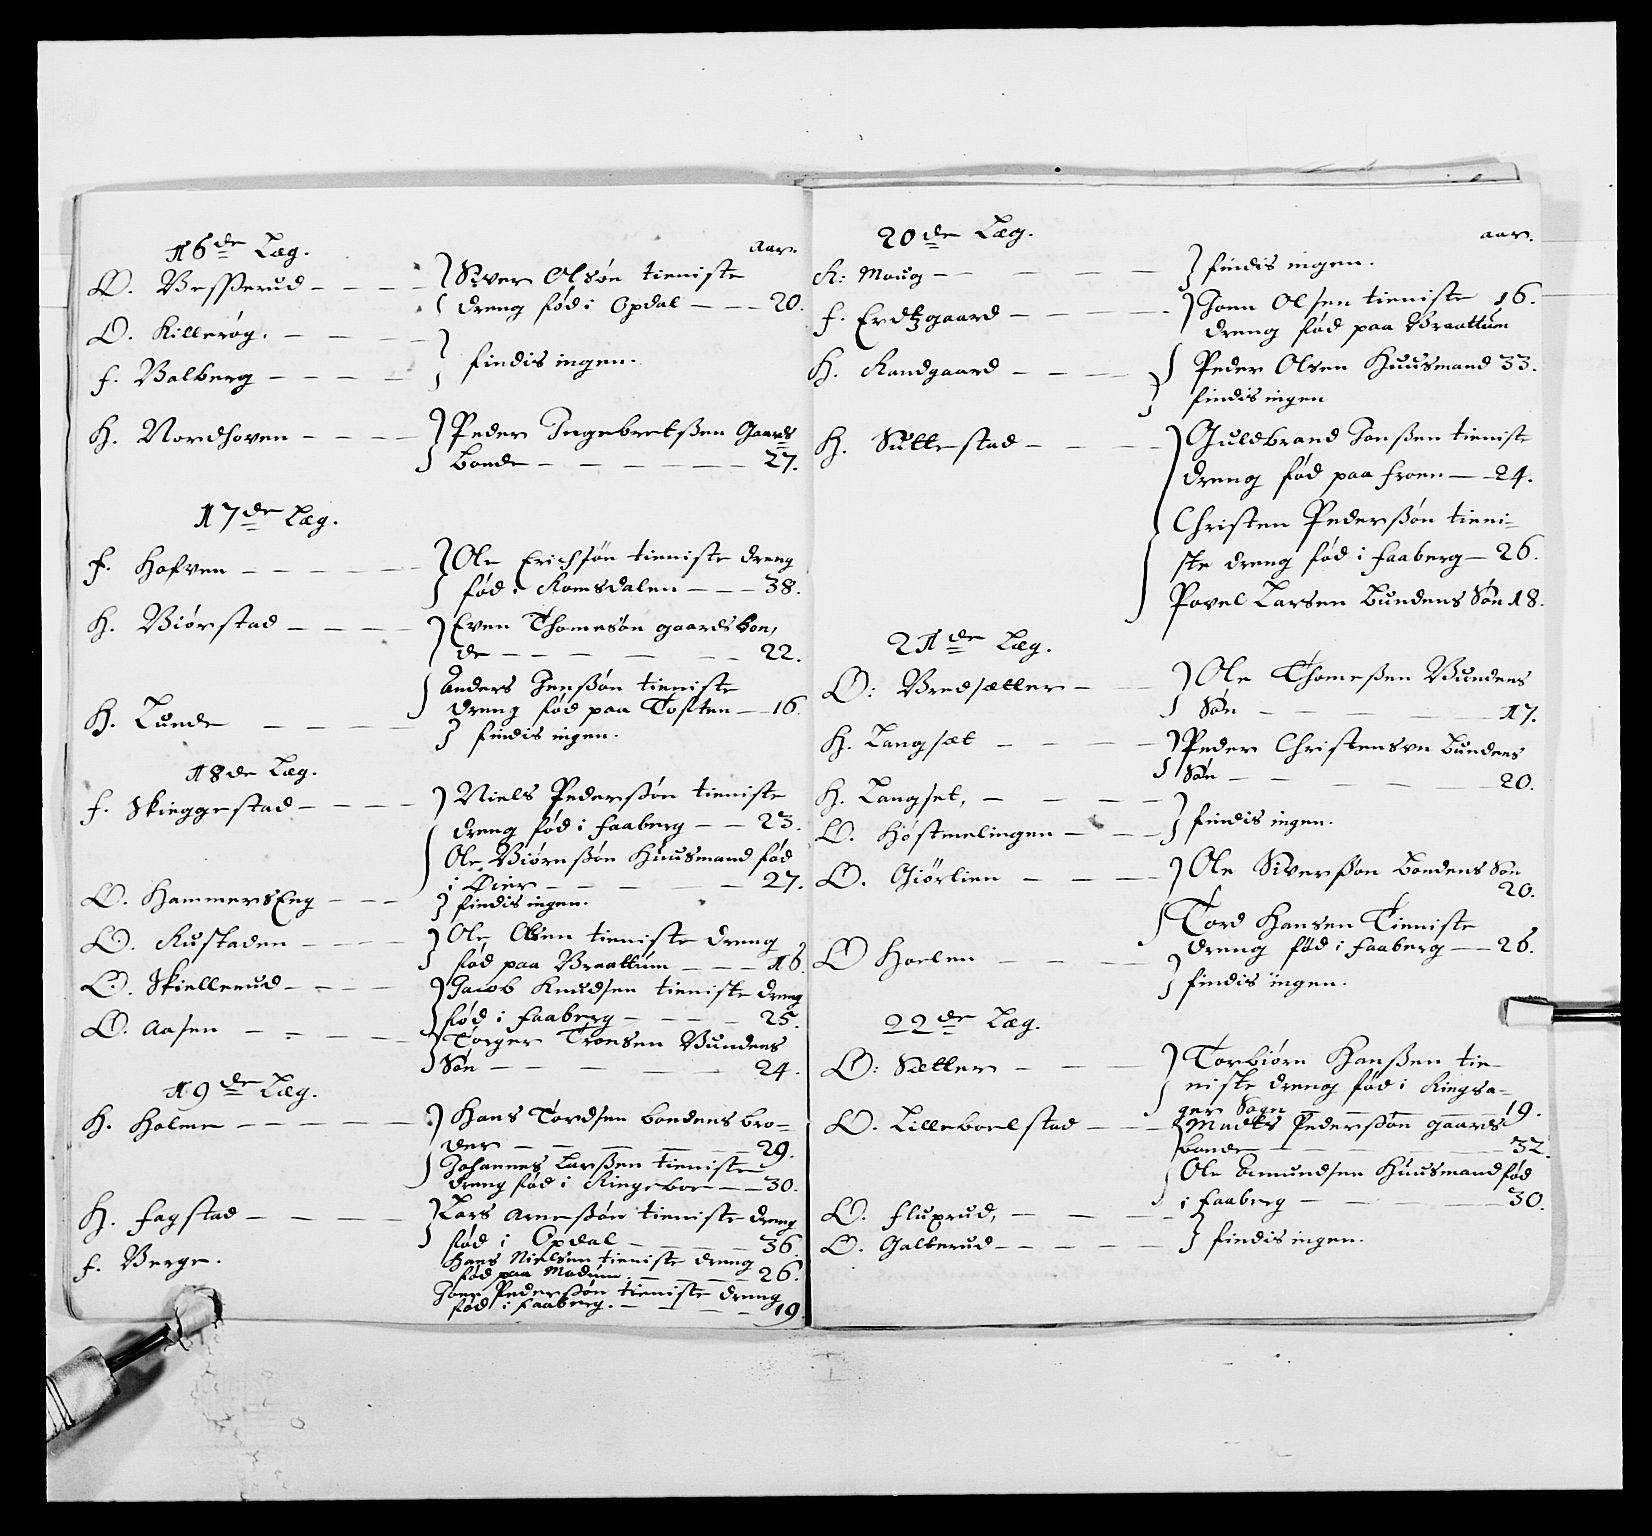 16de Læg.
aar.
Ø. Vesserud – – – –
Siver Olsøn tieniste
dreng fød i Opdal – – – 20.
Ø. Killerøg. – – – –
f. Balberg – – – –
findis ingen.
H. Nordhoven – – – –
Peder Ingebretßen Gaards
bonde – – – – – – 27.
17de Læg.
f. Hofven – – – – – –
Ole Erichsøn tieniste dreng
fød i Romsdalen – – – 38.
H. Biørstad – – – –
Even Thomesøn gaards bon,
de – – – – – – 22.
Anders Jenßøn tieniste
dreng fød paa Toften – 16
H. Lunde – – – –
findis ingen.
18de Læg.
f. Skieggestad – – – –
Niels Pederßøn tieniste
dreng fød i faaberg – – 23.
Ole Biørnßøn Huusmand fød
i Øier – – – – – 27.
Ø. HammersEng – – –
findis ingen.
Ø. Rustaden – – – –
Ole Olsen tieniste dreng
fød paa Braattum – – – 16.
Ø. Skiellerud – – – –
Jacob Knudsen tieniste dreng
fød i faaberg – – – – 25.
Ø. Aasen – – – –
Torger Tronsen Bundens
Søn – – – – – 24.
19de Læg.
H. Holme – – – – –
Hans Tordsen bondens bro=
der – – – – – 29.
Johannes Larßen tieniste
dreng fød i Ringeboe – – 30.
H. fagstad – – – –
Lars Arneßøn tieniste dreng
fød i Opdal – – – – 36.
f. Berge.
Hans Nielsen tieniste dreng
fød paa Modum – – – – 26.
Joen Pederßøn tieniste dreng
fød i faaberg. – – – – 19.
20de Læg.
aar.
R: Moug – – – – –
findis ingen.
f. Erdtzgaard – – – – –
Joen Olsen tieniste 16.
dreng fød paa Braattum
H. Randgaard – – – –
Peder Olsen Huusmand 33.
findis ingen
H. Suttestad – – – –
Guldbrand Jonßen tienist
dreng fød paa froen – 24.
Christen Pederßøn tieni=
ste dreng fød i faaberg – 26.
Povel Larsen Bundens Søn 18.
21de Læg.
Ø: Bredsætter – –
Ole Thomeßen Bundens
Søn – – – – – 17.
H. Langsæt – – – –
Peder Christensøn Bundens
Søn – – – – – 20.
H. Langset, – – – –
Ø. Høstmelingen – – –
findis ingen.
Ø. Giørlien – – – –
Ole Siverßøn Bondens Søn
20.
Tord Hansen Tieniste
dreng fød i faaberg – – 26.
Ø Hoelen – – – –
findis ingen.
22de Læg.
Ø: Sætter – – – –
Torbiørn Hanßen tie=
niste dreng fød i Ringsa=
ger Sogn – – – – 19.
Ø. Lilleboelstad – – –
Madtz Pederßøn gaards
bonde – – – – – 32.
Ole Amundsen Huusmand fød
i faaberg – – – – 30.
Ø. fluxrud, – – – –
Ø. Galterud – – – – –
findis ingen.